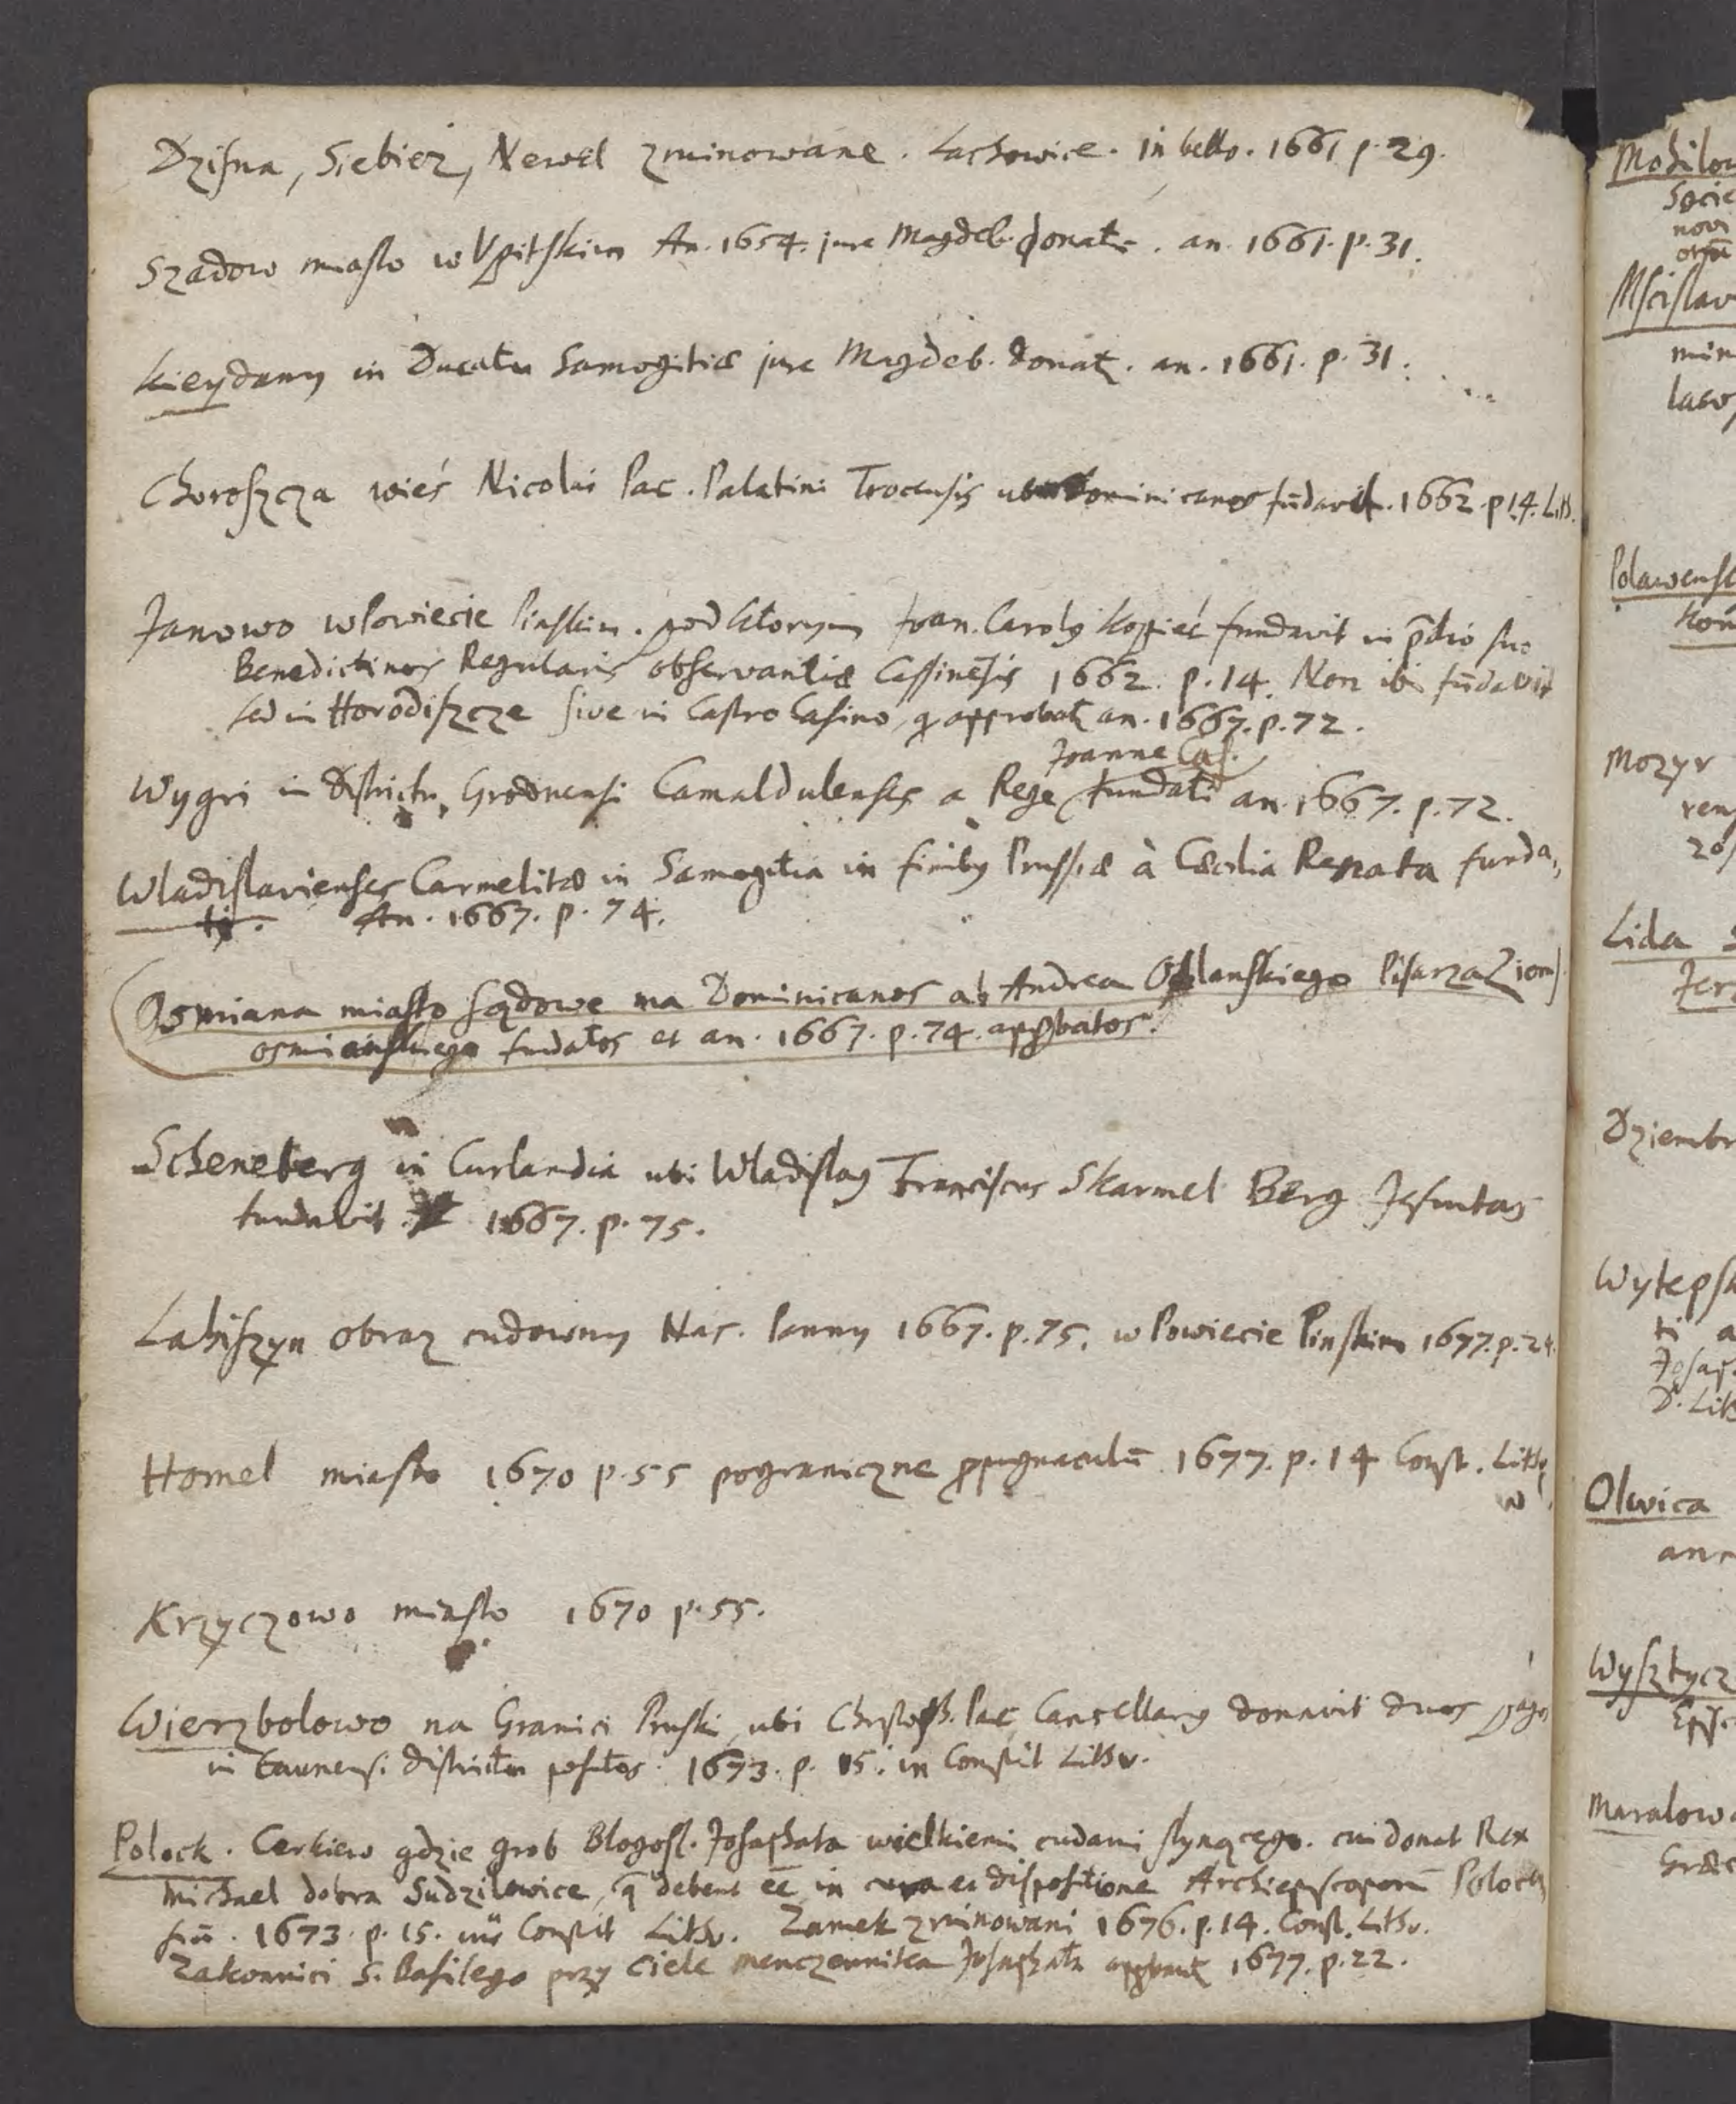 Dzisna, Siebież, Newel zruinowane. Lachowice. in bello. 1661 p. 29.
Szadow miasto w Upitskim An. 1654. jure Magdeb. donatr. an. 1661. p. 31.
Kieydany in Ducatu Samogitiæ jure Magdeb. donat. an. 1661. p. 31.
Choroszcza wieś Nicolai Pac. Palatini Trocensis ubi Dominicanos fūdavit. 1662. p 14. Lith.
Janowo w Powiecie Pinskim. pod ktorym Joan. Carolq Kopieć fundavit in p̄dio suo
Benedictinos Regularis observantiæ Cassinēsis 1662. p. 14. Non ibi fūdavit
sed in Horodiszcze sive in Castro Casino, q approbat an. 1667. p. 72.
Joanne Cas.
Wygri in Districtu Grodnensi Camaldulenses a Rege fundati an. 1667. p. 72.
Wladislavienses Carmelitæ in Samogitia in finibq Prussiæ à Cæcilia Renata funda,
ti. An. 1667. p. 74.
Osmiana miasto sądowe ma Dominicanos ab Andrea Pisarza Ziem
osmianskiego fundatos et an. 1667. p. 74. approbatos.
Scheneberg in Curlandia ubi Wladislaq Franciscus Skarmel Berg Jesuitas
fundavit 1667. p. 75.
Lahiszyn obraz cudowny Nas. Panny 1667. p. 75. w Powiecie Pinskim 1677. p. 24.
Homel miasto 1670 p. 55 pograniczne propugnaculū 1677. p. 14 Const. Lith
w
Krzyczowo miasto 1670 p. 55.
Wierzbolowo na Granici Pruski, ubi Christoph. Pac Cancellariq donavit duos pagos
in Caunensi districtu positos. 1673. p. 15. in Constit Lithv.
Polock. Cerkiew gdzie grob Blogosl. Josaphata wielkiemi cudami slynącego. cui donat Rex
Michael dobra Sudzilowice, q debent ēē in cura et dispositione Archiepiscoporū Polocen
siū. 1673. p. 15. in Constit Lithv. Zamek zruinowani 1676. p. 14. Const. Lithv.
Zakonnici S. Basilego przy ciele menczennika Josaphata 1677. p. 22.
Mohilow
Socie
novi
Mscislaw
min
Polawensk
Mozyr
ren
Lida
Dziembr
Wytepsk
ti a
Josap
D. Lith
Olwica
ann
Wysztycz
Episc
Maralowo
Græc